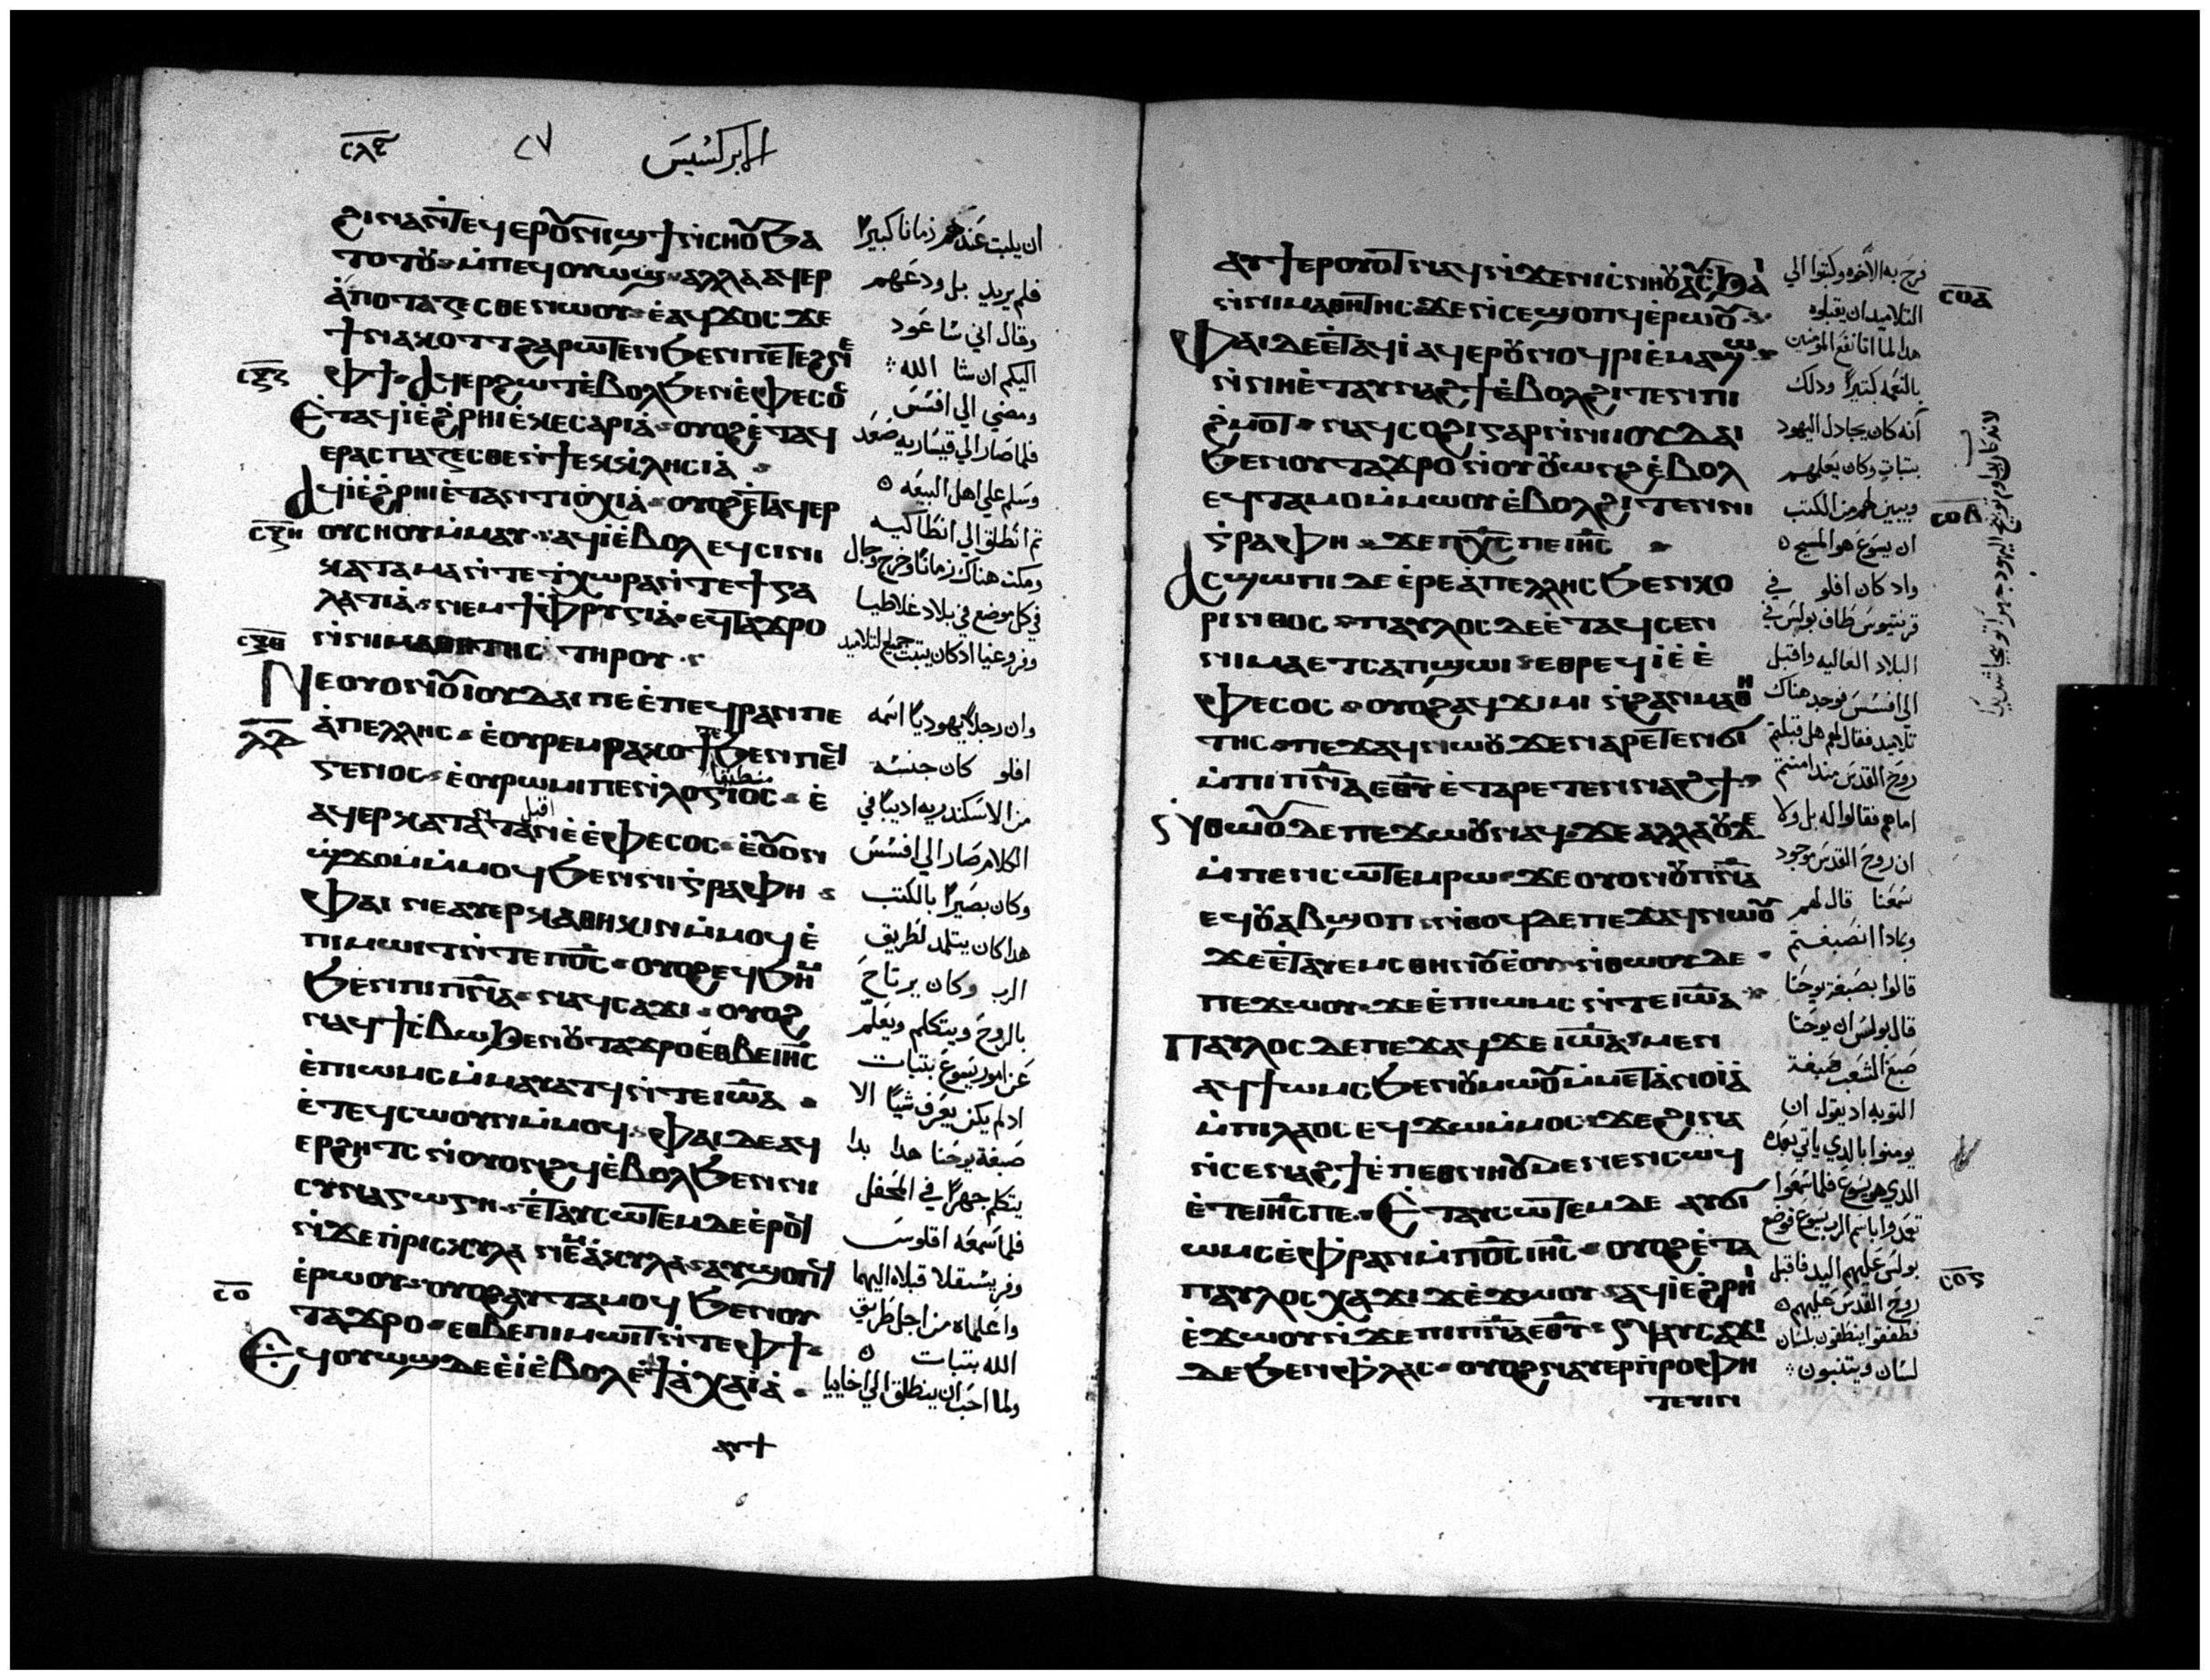 الابركسيس
ϩⲓⲛⲁⲛ̇ⲧⲉϥⲉⲣⲟⲩⲛⲓϣϯⲛ̇ⲥⲏⲟⲩϧⲁ
ⲧⲟⲧⲟⲩ ⲙ̇ⲡⲉϥⲟⲩⲱϣ ⲁⲗⲗⲁ ⲁϥⲉⲣ
ⲁ̇ⲡⲟⲧⲁⲍⲉⲥⲑⲉ ⲛⲱⲟⲩ ⲉ̇ⲁϥϫⲟⲥ ϫⲉ
ϯⲛⲁⲕⲟⲧⲧ ϩⲁⲣⲱⲧⲉⲛ ϧⲉⲛ ⲡⲉⲧⲉϩⲛⲉ
ⲫϯ ⲁϥⲉⲣϩⲱⲧ ⲉ̇ⲃⲟⲗ ϧⲉⲛ ⲉ̇ⲫⲉⲥⲟⲥ
ⲉ̇ⲧⲁϥⲓ̇ ⲉ̇ϩⲣⲏⲓ ⲉ̇ⲕⲉⲥⲁⲣⲓⲁ̇ ⲟⲩⲟϩ ⲉ̇ⲧⲁϥ
ⲉⲣⲁⲥⲡⲁⲍⲉⲥⲑⲉ ⲛ̇ϯⲉⲕⲕⲗⲏⲥⲓⲁ̇
ⲁϥⲓ̇ ⲉ̇ϩⲣⲏⲓ ⲉ̇ⲧⲁⲛⲧⲓⲟⲭⲓⲁ̇ ⲟⲩⲟϩ ⲉ̇ⲧⲁϥⲉⲣ
ⲟⲩⲥⲏⲟⲩ ⲙ̇ⲙⲁⲩ ⲁϥⲓ̇ ⲉ̇ⲃⲟⲗ ⲉϥⲥⲓⲛⲓ
ⲕⲁⲧⲁ ⲙⲁ ⲛ̇ⲧⲉ ϯⲭⲱⲣⲁ ⲛ̇ⲧⲉ ϯⲅⲁ
ⲗⲁⲧⲓⲁ̇ ⲛⲉⲙ ϯⲫⲣⲩⲅⲓⲁ̇ ⲉϥⲧⲁϫⲣⲟ
ⲛ̇ⲛⲓⲙⲁⲑⲏⲧⲏⲥ ⲧⲏⲣⲟⲩ
ⲛⲉ ⲟⲩⲟⲛ ⲟⲩⲓⲟⲩⲇⲁⲓ ⲡⲉ ⲉ̇ⲡⲉϥⲣⲁⲛ ⲡⲉ
ⲁ̇ⲡⲉⲗⲗⲏⲥ ⲉ̇ⲟⲩⲣⲉⲙⲣⲁⲕⲟϯ ⲡⲉ ϧⲉⲛ ⲡⲉϥ
ⲅⲉⲛⲟⲥ ⲉ̇ⲟⲩⲣⲱⲙⲓ ⲡⲉ ⲛ̇ⲗⲟⲅⲓⲟⲥ ⲉ̇
ⲁϥⲉⲣⲕⲁⲧⲁⲛⲧⲁⲛ ⲉ̇ⲉ̇ⲫⲉⲥⲟⲥ ⲉ̇ⲟⲩⲟⲛ
ϣ̇ϫⲟⲙ ⲙ̇ⲙⲟϥ ϧⲉⲛ ⲛⲓⲅⲣⲁⲫⲏ
ⲫⲁⲓ ⲛⲉ ⲁⲩⲉⲣⲕⲁⲑⲏⲕⲓⲛ ⲙ̇ⲙⲟϥ ⲉ̇
ⲡⲓⲙⲱⲓⲧ ⲛ̇ⲧⲉ ⲡⲟ̅ⲥ̅ ⲟⲩⲟϩ ⲉϥϧⲏⲙ
ϧⲉⲛ ⲡⲓⲡ̅ⲛ̅ⲁ̅ ⲛⲁϥⲥⲁϫⲓ ⲟⲩⲟϩ
ⲛⲁϥϯⲥⲃⲱ ϧⲉⲛ ⲟⲩⲧⲁϫⲣⲟ ⲉ̇ⲑⲃⲉ ⲓ̅ⲏ̅ⲥ̅
ⲉ̇ⲡⲓⲱⲙⲥ ⲙ̇ⲙⲁⲩⲁⲧϥ ⲛ̇ⲧⲉ ⲓⲱ̅ⲁ̅
ⲉ̇ⲧⲉϥⲥⲱⲟⲩⲛ ⲙ̇ⲙⲟϥ ⲫⲁⲓ ⲇⲉ ⲁϥ
ⲉⲣϩⲏⲧⲥ ⲛ̇ⲟⲩⲟⲛϩϥ ⲉ̇ⲃⲟⲗ ϧⲉⲛ ⲛⲓ
ⲥⲩⲛⲁⲅⲱⲅⲏ ⲉ̇ⲧⲁⲩⲥⲱⲧⲉⲙ ⲇⲉ ⲉ̇ⲣⲟϥ
ⲛ̇ϫⲉ ⲡ̇ⲣⲓⲥⲕⲩⲗⲁ ⲛⲉⲙ ⲁ̇ⲕⲩⲗⲁ ⲁⲩϣⲟⲡϥ
ⲉ̇ⲣⲱⲟⲩ ⲟⲩⲟϩ ⲁⲩⲧⲁⲙⲟϥ ϧⲉⲛ ⲟⲩ
ⲧⲁϫⲣⲟ ⲉⲑⲃⲉ ⲡⲓⲙⲱⲓⲧ ⲛ̇ⲧⲉ ⲫϯ
ⲉϥⲟⲩⲱϣ ⲇⲉ ⲉ̇ⲓ̇ ⲉ̇ⲃⲟⲗ ⲉ̇ϯⲁ̇ⲭⲁⲓⲁ̇
ⲁⲩϯ
ان يلبت عندهم زمانا كبيرا
فلم يريد بل ودعهم
وقال اني سا عود
اليكم ان شا الله
ومضي الي افسس
فلما صار الي قيساريه صعد
وسلم علي اهل البيعه
تم انطلق الي انطاكيه
ومكت هناك زمانا وخرج وجال
في كل موضع في بلاد غلاطيا
وفروغيا ادكان يتبت جميع التلاميد
وان رجلا يهوديا اسمه
افلو كان جنسه
من الاسكندريه اديبا في
الكلام صار الي افسس
وكان بصيرا بالكتب
هدا كان يتلمد لطريق
الرب وكان يرتاح
بالروح ويتكلم ويعلم
عن امور يسوع بتبات
ادلم يكن يعرف شيا الا
صبغة يوحنا هدا بدا
يتكلم جهرا في المحفل
فلما سمعه اقلوس
وفريسقلا قبلاه اليهما
واعلماه من اجل طريق
الله بتبات
ولما احب ان ينطلق الي اخاييا
ⲁⲩϯⲉⲣⲟⲩⲟⲧ ⲛⲁϥ ⲛ̇ϫⲉ ⲛⲓⲥⲛⲏⲟⲩ ⲁⲩⲥϧⲁⲓ
ⲛ̇ⲛⲓⲙⲁⲑⲏⲧⲏⲥ ϫⲉ ⲛ̇ⲥⲉϣⲟⲡϥ ⲉ̇ⲣⲱⲟⲩ
ⲫⲁⲓ ⲇⲉ ⲉ̇ⲧⲁϥⲓ̇ ⲁϥⲉⲣⲟⲩⲛⲟϥⲣⲓ ⲉ̇ⲙⲁϣⲱ
ⲛ̇ⲛⲏ ⲉ̇ⲧⲁⲩⲛⲁϩϯ ⲉ̇ⲃⲟⲗ ϩⲓⲧⲉⲛ ⲡⲓ
ϩ̇ⲙⲟⲧ ⲛⲁϥⲥⲟϩⲓ ⲅⲁⲣ ⲛ̇ⲛⲓⲓⲟⲩⲇⲁⲓ
ϧⲉⲛ ⲟⲩⲧⲁϫⲣⲟ ⲛ̇ⲟⲩⲟⲩⲱⲛϩ ⲉ̇ⲃⲟⲗ
ⲉϥⲧⲁⲙⲟ ⲙ̇ⲙⲱⲟⲩ ⲉ̇ⲃⲟⲗ ϩⲓⲧⲉⲛ ⲛⲓ
ⲅ̇ⲣⲁⲫⲏ ϫⲉ ⲡⲭ̅ⲥ̅ ⲡⲉ ⲓ̅ⲏ̅ⲥ̅
ⲁⲥϣⲱⲡⲓ ⲇⲉ ⲉ̇ⲣⲉ ⲁ̇ⲡⲉⲗⲗⲏⲥ ϧⲉⲛ ⲕⲟ
ⲣⲓⲛⲑⲟⲥ ⲡⲁⲩⲗⲟⲥ ⲇⲉ ⲉ̇ⲧⲁϥⲥⲉⲛ
ⲛⲓⲙⲁ ⲉⲧⲥⲁⲡϣⲱⲓ ⲉⲑⲣⲉϥⲓ̇ ⲉ̇ⲉ̇
ⲫⲉⲥⲟⲥ ⲟⲩⲟϩ ⲁϥϫⲓⲙⲓ ⲛ̇ϩⲁⲛⲙⲁⲑⲏ
ⲧⲏⲥ ⲡⲉϫⲁϥ ⲛⲱⲟⲩ ϫⲉ ⲛ̇ⲁⲣⲉⲧⲉⲛϭⲓ
ⲙ̇ⲡⲓⲡ̅ⲛ̅ⲁ̅ ⲉⲑⲩ ⲉ̇ⲧⲁⲣⲉⲧⲉⲛⲛⲁϩϯ
ⲛ̇ⲑⲱⲟⲩ ⲇⲉ ⲡⲉϫⲱⲟⲩ ⲛⲁϥ ϫⲉ ⲁⲗⲗⲁ ⲟⲩⲇⲉ
ⲙ̇ⲡⲉⲛⲥⲱⲧⲉⲙ ⲣⲱ ϫⲉ ⲟⲩⲟⲛ ⲟⲩⲡ̅ⲛ̅ⲁ̅
ⲉϥⲟⲩⲁⲃ ϣⲟⲡ ⲛ̇ⲑⲟϥ ⲇⲉ ⲡⲉϫⲁϥ ⲛⲱⲟⲩ
ϫⲉ ⲉ̇ⲧⲁⲣⲉⲧⲉⲛϭⲓ ⲱⲙⲥ ⲉ̇ⲟⲩ ⲛ̇ⲑⲱⲟⲩ ⲇⲉ
ⲡⲉϫⲱⲟⲩ ϫⲉ ⲉ̇ⲡⲓⲱⲙⲥ ⲛ̇ⲧⲉ ⲓⲱ̅ⲁ̅
ⲡⲁⲩⲗⲟⲥ ⲇⲉ ⲡⲉϫⲁϥ ϫⲉ ⲓⲱ̅ⲁ̅ ⲙⲉⲛ
ⲁϥϯⲱⲙⲥ ϧⲉⲛ ⲟⲩⲙⲱⲟⲩ ⲙ̇ⲙⲉⲧⲁⲛⲟⲓⲁ̇
ⲙ̇ⲡⲓⲗⲁⲟⲥ ⲉϥϫⲱ ⲙ̇ⲙⲟⲥ ϫⲉ ϩⲓⲛⲁ
ⲛ̇ⲥⲉⲛⲁϩϯ ⲉ̇ⲡⲉⲑⲛⲏⲟⲩ ⲙⲉⲛⲉⲛⲥⲱϥ
ⲉ̇ⲧⲉ ⲓ̅ⲏ̅ⲥ̅ ⲡⲉ ⲉ̇ⲧⲁⲩⲥⲱⲧⲉⲙ ⲇⲉ ⲁⲩϭⲓ
ⲱⲙⲥ ⲉ̇ⲫⲣⲁⲛ ⲙ̇ⲡⲟ̅ⲥ̅ ⲓ̅ⲏ̅ⲥ̅ ⲟⲩⲟϩ ⲉ̇ⲧⲁ
ⲡⲁⲩⲗⲟⲥ ⲭⲁϫⲓϫ ⲉ̇ϫⲱⲟⲩ ⲁϥⲓ̇ ⲉ̇ϩⲣⲏⲓ
ⲉ̇ϫⲱⲟⲩ ⲛ̇ϫⲉ ⲡⲓⲡ̅ⲛ̅ⲁ̅ ⲉⲑⲩ ⲛⲁⲩⲥⲁϫⲓ
ⲇⲉ ϧⲉⲛ ⲫⲗⲁⲥ ⲟⲩⲟϩ ⲛⲁⲩⲉⲣⲡ̇ⲣⲟⲫⲏ
ⲧⲉⲩⲓⲛ
فرح به الاخوه وكتبوا الي
التلاميد ان يقبلوه
هدا لما اتا نفع المومنين
بالنعمه كتيرا ودلك
انه كان يجادل اليهود
بتبات وكان يعلمهم
ويبين لهم من الكتب
ان يسوع هو المسيح
واد كان افلو في
قرنتيوس طاف بولس في
البلاد العاليه واقبل
الي افسس فوجد هناك
تلاميد فقال لهم هل قبلتم
روح القدس مند امنتم
اما هم فقالوا له بل ولا
ان روح القدس موجود
سمعنا قال لهم
وبمادا انصبغتم
قالوا بصبغة يوحنا
قال بولس ان يوحنا
صبغ الشعب صبغة
التوبه اد يقول ان
يومنوا بالدي ياتي بعده
الدي هو يسوع فلما سمعوا
تعمدوا باسم الرب يسوع فوضع
بولس عليهم اليد فاقبل
روح القدس عليهم
فطفقوا ينطقون بلسان
لسان ويتنبون